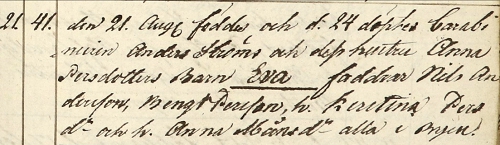 21. 41. den 21. Aug. föddes och d. 24 döptes Carabi
nieren Anders Ströms och dess hustru Anna
Persdotters Barn Eva faddrar Nils An
dersson, Bengt Persson, h. Kerstina Pers
dr och h. Anna Månsdr alla i byen.